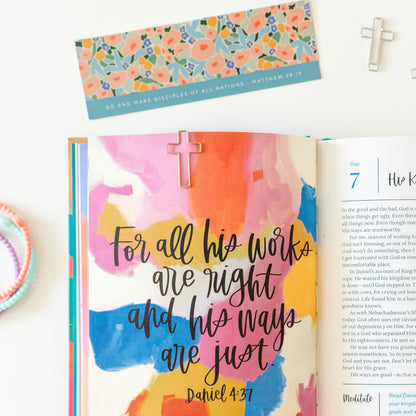 GO AND MAKE DISCIPLES OF ALL NATIONS - MATTHEW 28:19
For all his works
are right
and his ways
are just.
Daniel 4:37
Day
7
His K
In the good and the bad, God is
when things get ugly. Even though
all things new. Even though man
His ways are trustworthy.
For me, seasons of waiting
God isn't listening, so out of fear
God won't do something, then I
I get frustrated with God or over
uncomfortable place.
In Daniel's account of King
pe. He wanted his kingdom to
is done—until God stepped in. T
in with cows, for crying out loud
control. Life found him in a hard
goodness known.
As with Nebuchadnezzar's
today. God often uses our circum
of our dependence on Him. For
not in a God who separated Him
In His righteousness, He met us
He may not have you grazing
season nonetheless. So in your w
and God you are to him. Don't let
heart for His grace.
His ways are good—in that w
Meditate
Read Dani
your kingdom
goals and